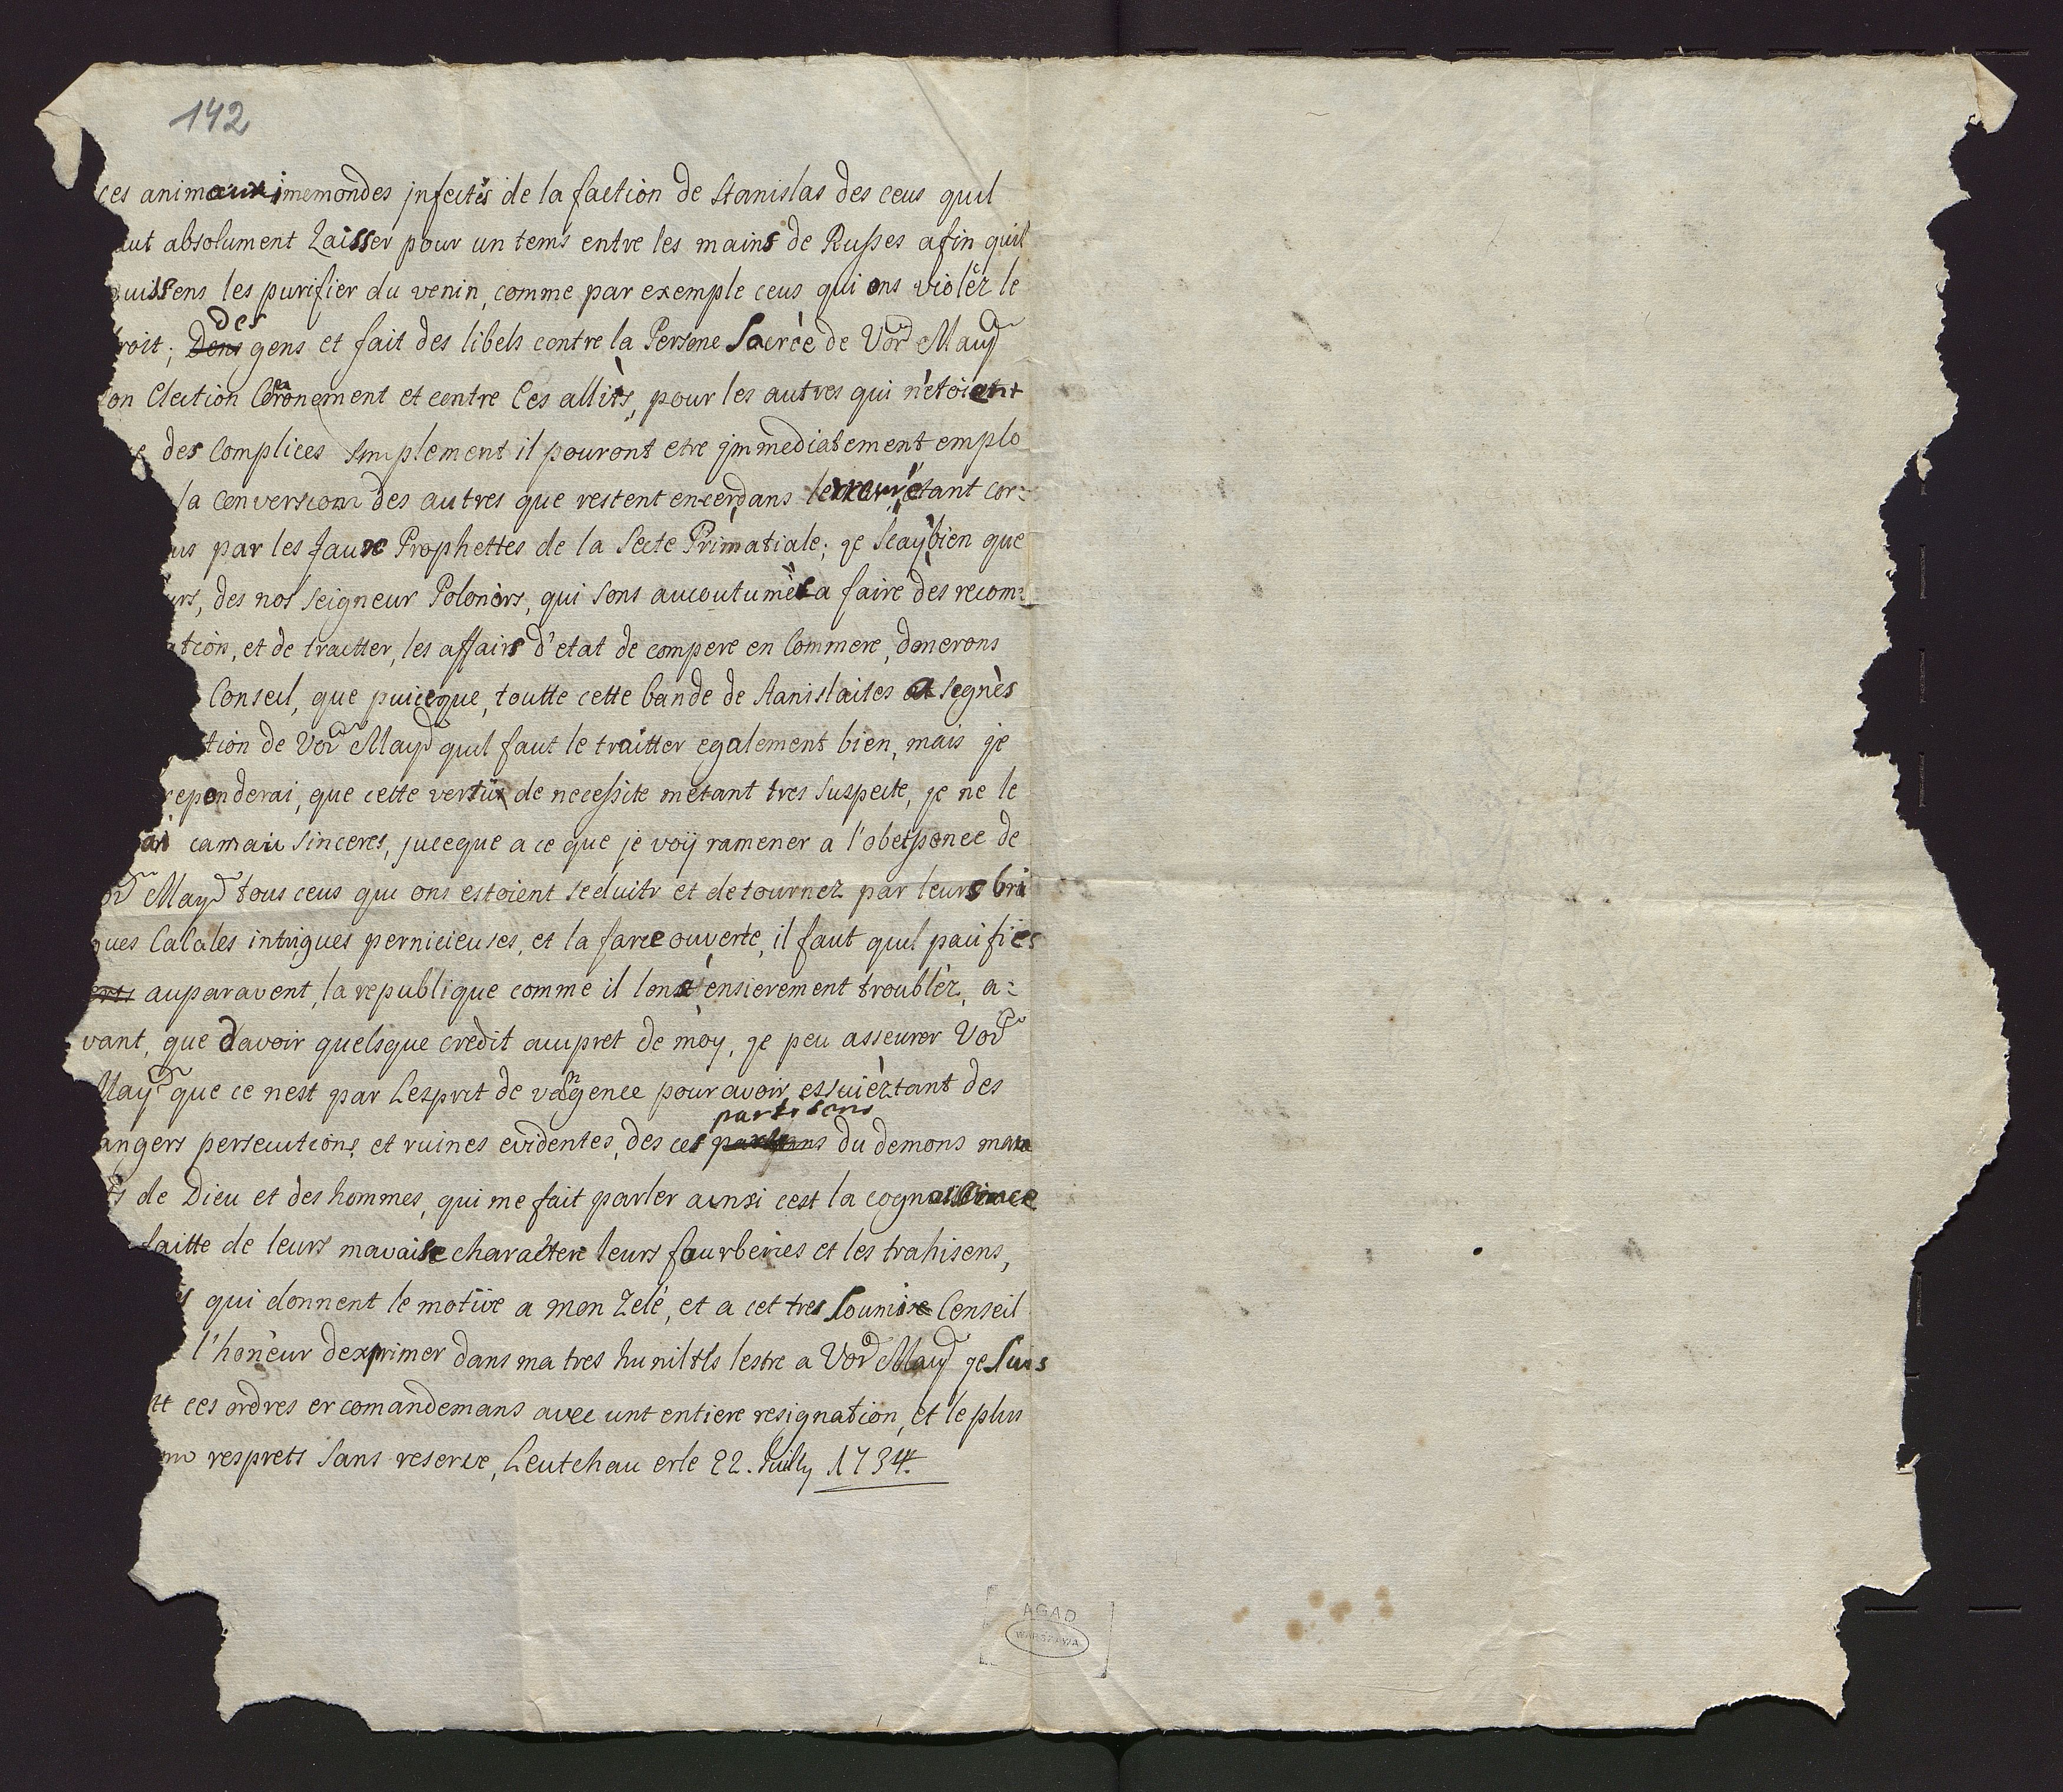 142
ces animaux imemondes jnfectès de la faction de Stanislas des ceus quil
aut absolument Laisser pour un tems entre les mains de Russes afin quil
puissens les purifier du venin, comme par exemple ceus qui ons violèz le
roit; des gens et fait des libels contre la Persone Sacrèe de Vor Mayd
on Election Coronement et contre Ces alliès, pour les autres qui n'etoient
e des Complices Simplement il pouront etre jmmediatement emplo
la conversion des autres que restent encor dans etant cor:
us par les faux Prophettes de la Secte Primatiale; je Scay bien que
urs, des nos Seigneur Polonois, qui sons aucoutumès a faire des recom:
ation, et de tractter, les affairs d'etat de compere en Commere, donerons
Conseil, que puiceque, toutte cette bande de Stanislaites a segnès
tion de Vor Mayd quil faut le traitter egalement bien, mais je
reponderai, que cette vertü de necessite metant tres suspecte, je ne le
ai camais sinceres, juceque a ce que je voij ramener a l'obeisence de
or Mayd tous ceus qui ons estoient seduits et detournez par leurs bri
gues Cabales intrigues pernicieuses, et la farce ouverte, il faut quil pacifies
auparavent, la republique comme il lons ensierement troublèz, a:
vant, que davoir quelsque credit aupret de moy, je peu asseurer Vor
May que ce nest par Lesprit de vangence pour avoir essuièz tant des
angers persecutions et ruines evidentes, des ces partisans du demons
is de Dieu et des hommes, qui me fait parler ainsi cest la cognaissance
faitte de leurs mavaise charactere leurs fourberies et les trahisens,
s qui donnent le motive a mon Zele, et a cet tres Soumise Conseil
l'honeur dexprimer dans ma tres humil lestre a Vor Mayd je Suis
tt ces ordres er comandemans avec unt entiere resignation, et le plus
resprets Sans reserve, Leutchau erle 22. Juilly 1734.
AGAD
WARSZAWA